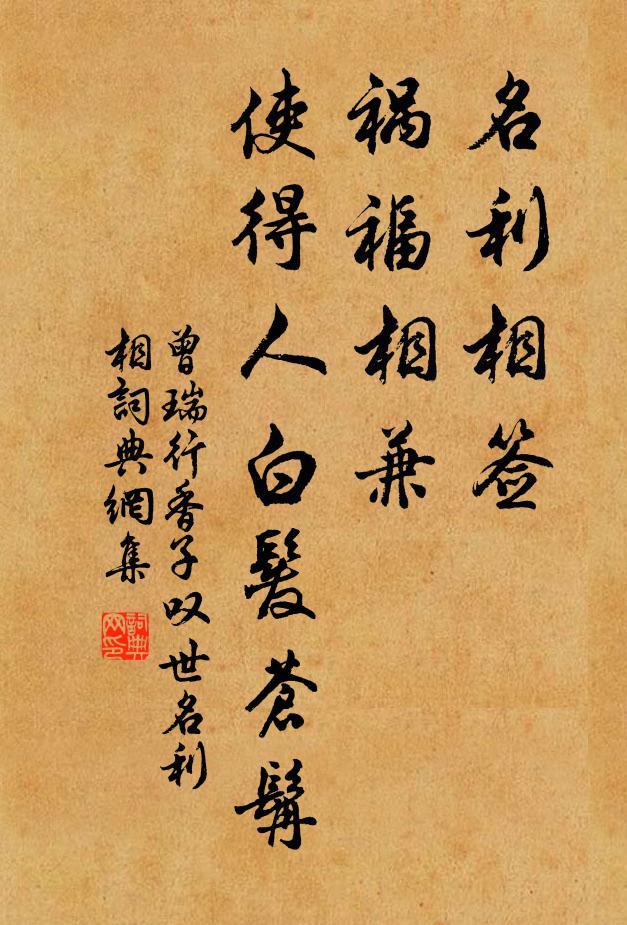 名利相签
祸福相兼
使得人白髮蒼髯
曾瑞行香子叹世名利
相詞典網集
詞典
网印